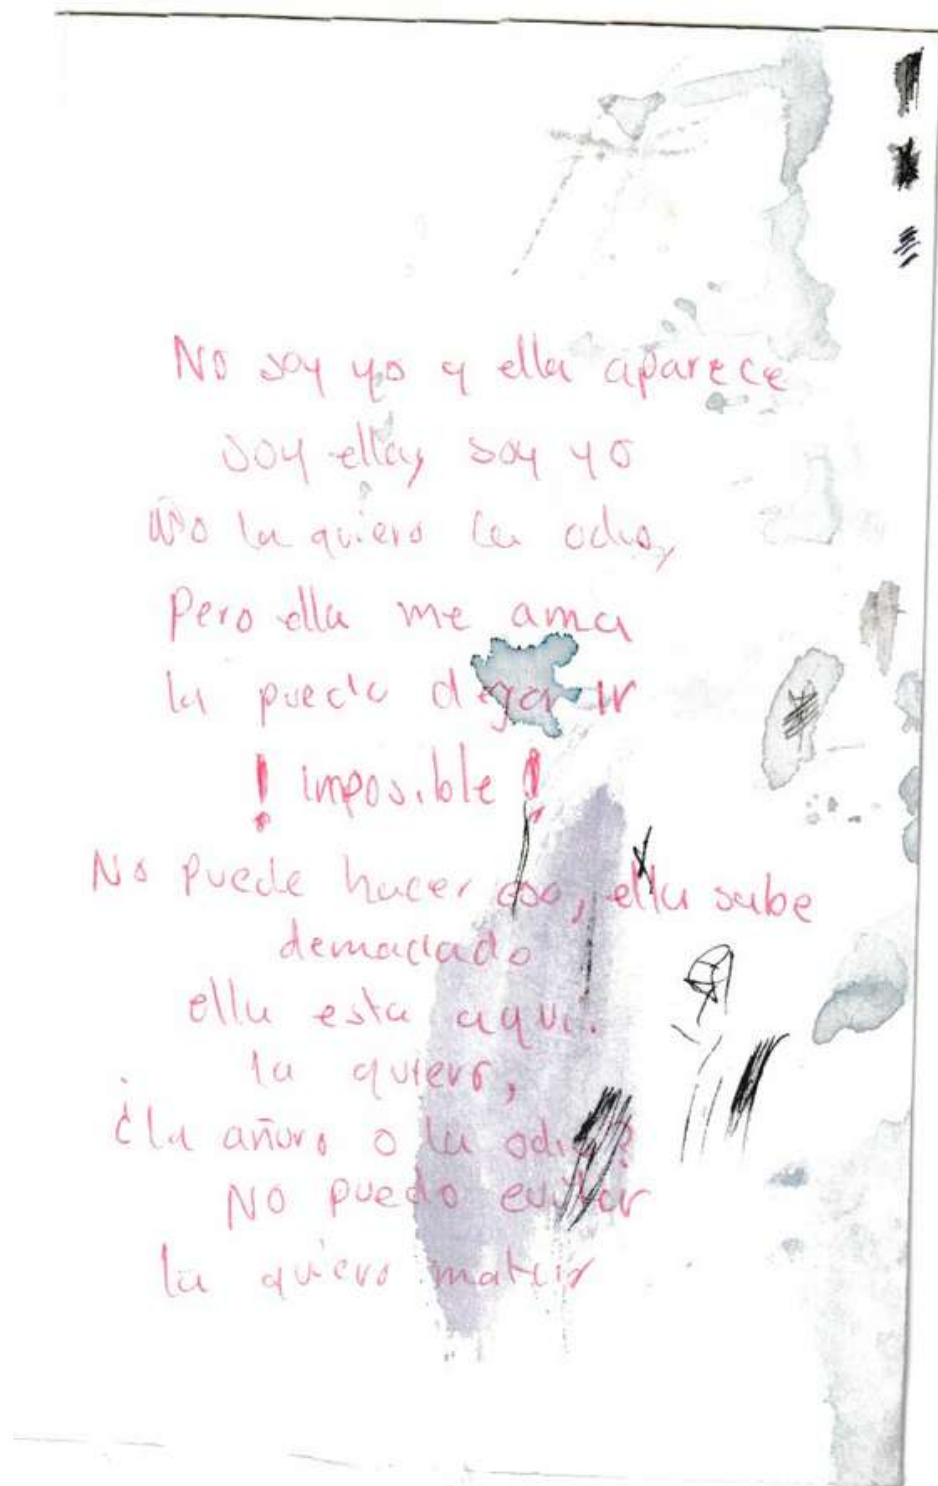 No soy yo y ella aparece
soy ella, soy yo
No la quiero la odio,
Pero ella me ama
la puedo dejar ir
! imposible !
No puede hacer eso, ella sabe
demaciado
ella esta aqui.
la quiero,
¿la añoro o la odio?
No puedo evitar
la quiero matar